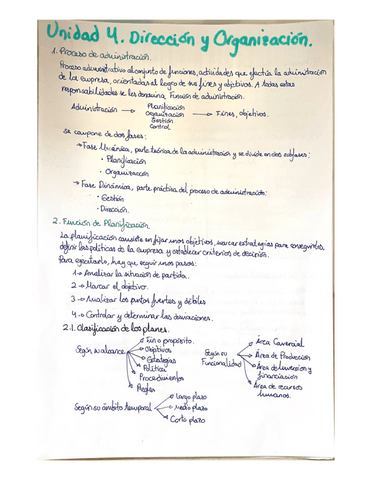 Unidad 4. Dirección y Organización.
1. Proceso de administración.
Proceso administrativo al conjunto de funciones, actividades que efectúa la administración
de la empresa, orientadas al logro de sus fines y objetivos. A todas estas
responsabilidades se les denomina Función de administración.
Administración → Planificación Organización Gestión Control → Fines, objetivos.
Se compone de dos fases:
→ Fase Mecánica, parte teórica de la administración y se divide en dos subfases:
· Planificación
· Organización
→ Fase Dinámica, parte práctica del proceso de administración:
· Gestión
· Dirección.
2. Función de Planificación.
La planificación consiste en fijar unos objetivos, marcar estrategias para conseguirlos,
definir las políticas de la empresa y establecer criterios de decisión.
Para ejecutarlo, hay que seguir unos pasos:
1 → Analizar la situación de partida.
2 → Marcar el objetivo.
3 → Analizar los puntos fuertes y débiles
4 → Controlar y determinar las desviaciones.
2.1. Clasificación de los planes.
Según su alcance
Fin o propósito.
Objetivos
Estrategias
Política
Procedimientos
Reglas
Según su Funcionalidad
Área Comercial
Área de Producción
Área de Inversión y
financiación
Área de recursos
humanos.
Según su ámbito temporal
Largo plazo
Medio plazo
Corto plazo